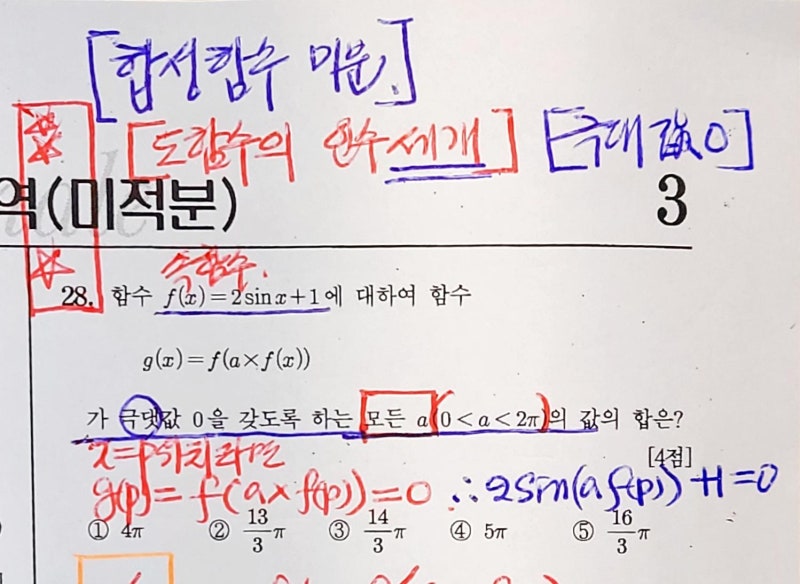 [합성함수 미분.]
[도함수의 인수 세개] [극대값 0]
역(미적분) 3
속함수.
28. 함수 f(x)=2sinx+1에 대하여 함수
g(x)=f(a×f(x))
가 극댓값 0을 갖도록 하는 모든 a(0<a<2π)의 값의 합은?
[4점]
x=p 위치라면
g(p)=f(a×f(p))=0 ∴2sin(a f(p))+1=0
① 4π ② 13/3 π ③ 14/3 π ④ 5π ⑤ 16/3 π